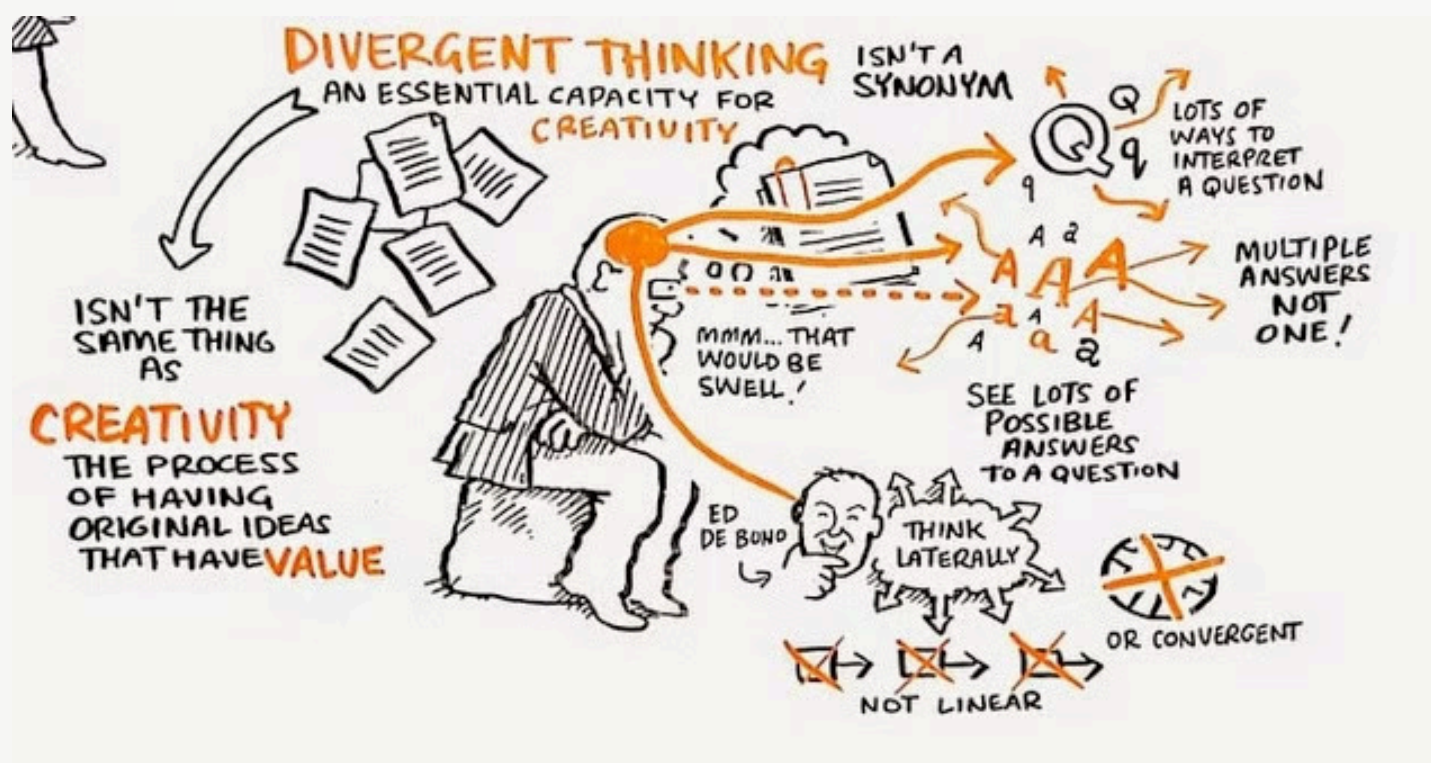 DIVERGENT THINKING
AN ESSENTIAL CAPACITY FOR
CREATIVITY
ISN'T A
SYNONYM
ISN'T THE
SAME THING
AS
CREATIVITY
THE PROCESS
OF HAVING
ORIGINAL IDEAS
THAT HAVE VALUE
Q Q
q
q
LOTS OF
WAYS TO
INTERPRET
A QUESTION
A a
A A A
a A A
A a a
MULTIPLE
ANSWERS
NOT
ONE!
MMM... THAT
WOULD BE
SWELL!
SEE LOTS OF
POSSIBLE
ANSWERS
TO A QUESTION
ED
DE BONO
THINK
LATERALLY
OR CONVERGENT
NOT LINEAR